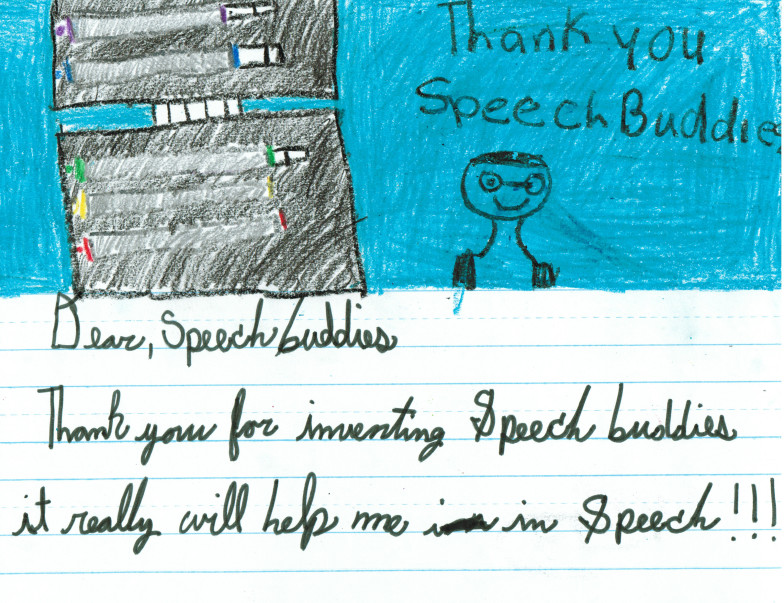 Thank you
Speech Buddie
Dear, Speech buddies
Thank you for inventing Speech buddies
it really will help me in in Speech!!!